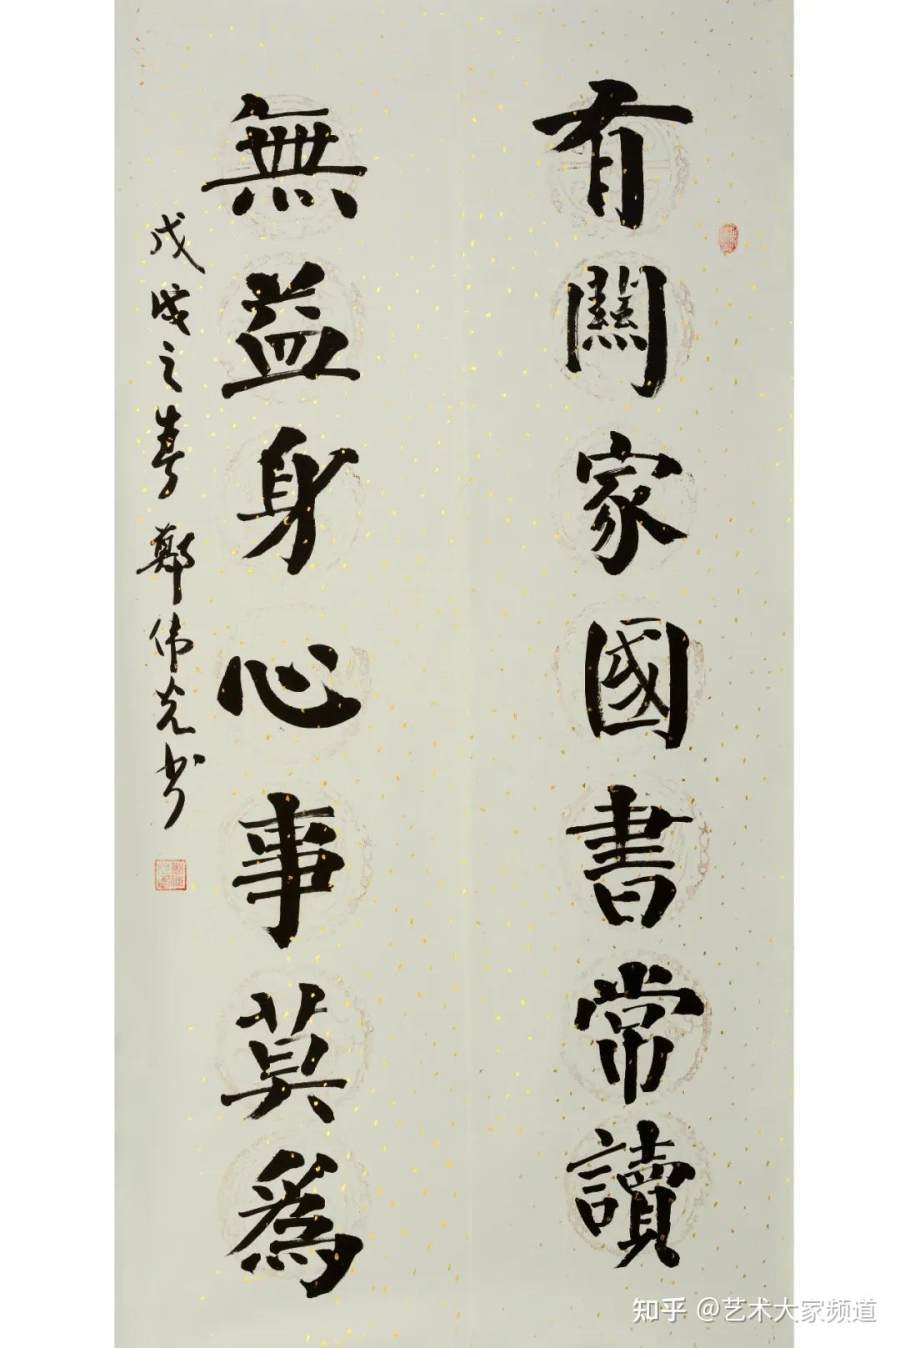 有關家國書常讀
無益身心事莫為
戊戌之春 鄭伟光书
知乎 @艺术大家频道